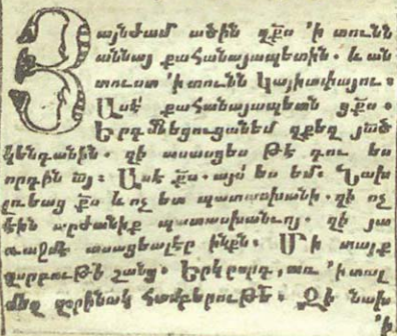 Յայնժամ ածին զքս՝ ՚ի տունն
աննայ քահանայապետին. և ան
տուստ ՚ի տունն կայիափայու։
Ասէ քահանայապետն ցքս.
Երդմնեցուցանեմ զքեզ յած
կենդանին. զի ասասցես թէ դու ես
որդին այ։ Ասէ քս. այո՛ ես եմ։ Նախ
լռեաց քս և ոչ ետ պատասխանի. զի ոչ
էին արժանիք պատասխանւոյ. զի յա
ռաջմէ ասացեալ էր ինքն. Մի տայք
զսրբութի շանց. Երկրորդ, առ ՚ի տալ
մեզ զօրինակ համբերութե. Զի նախ
՚ի